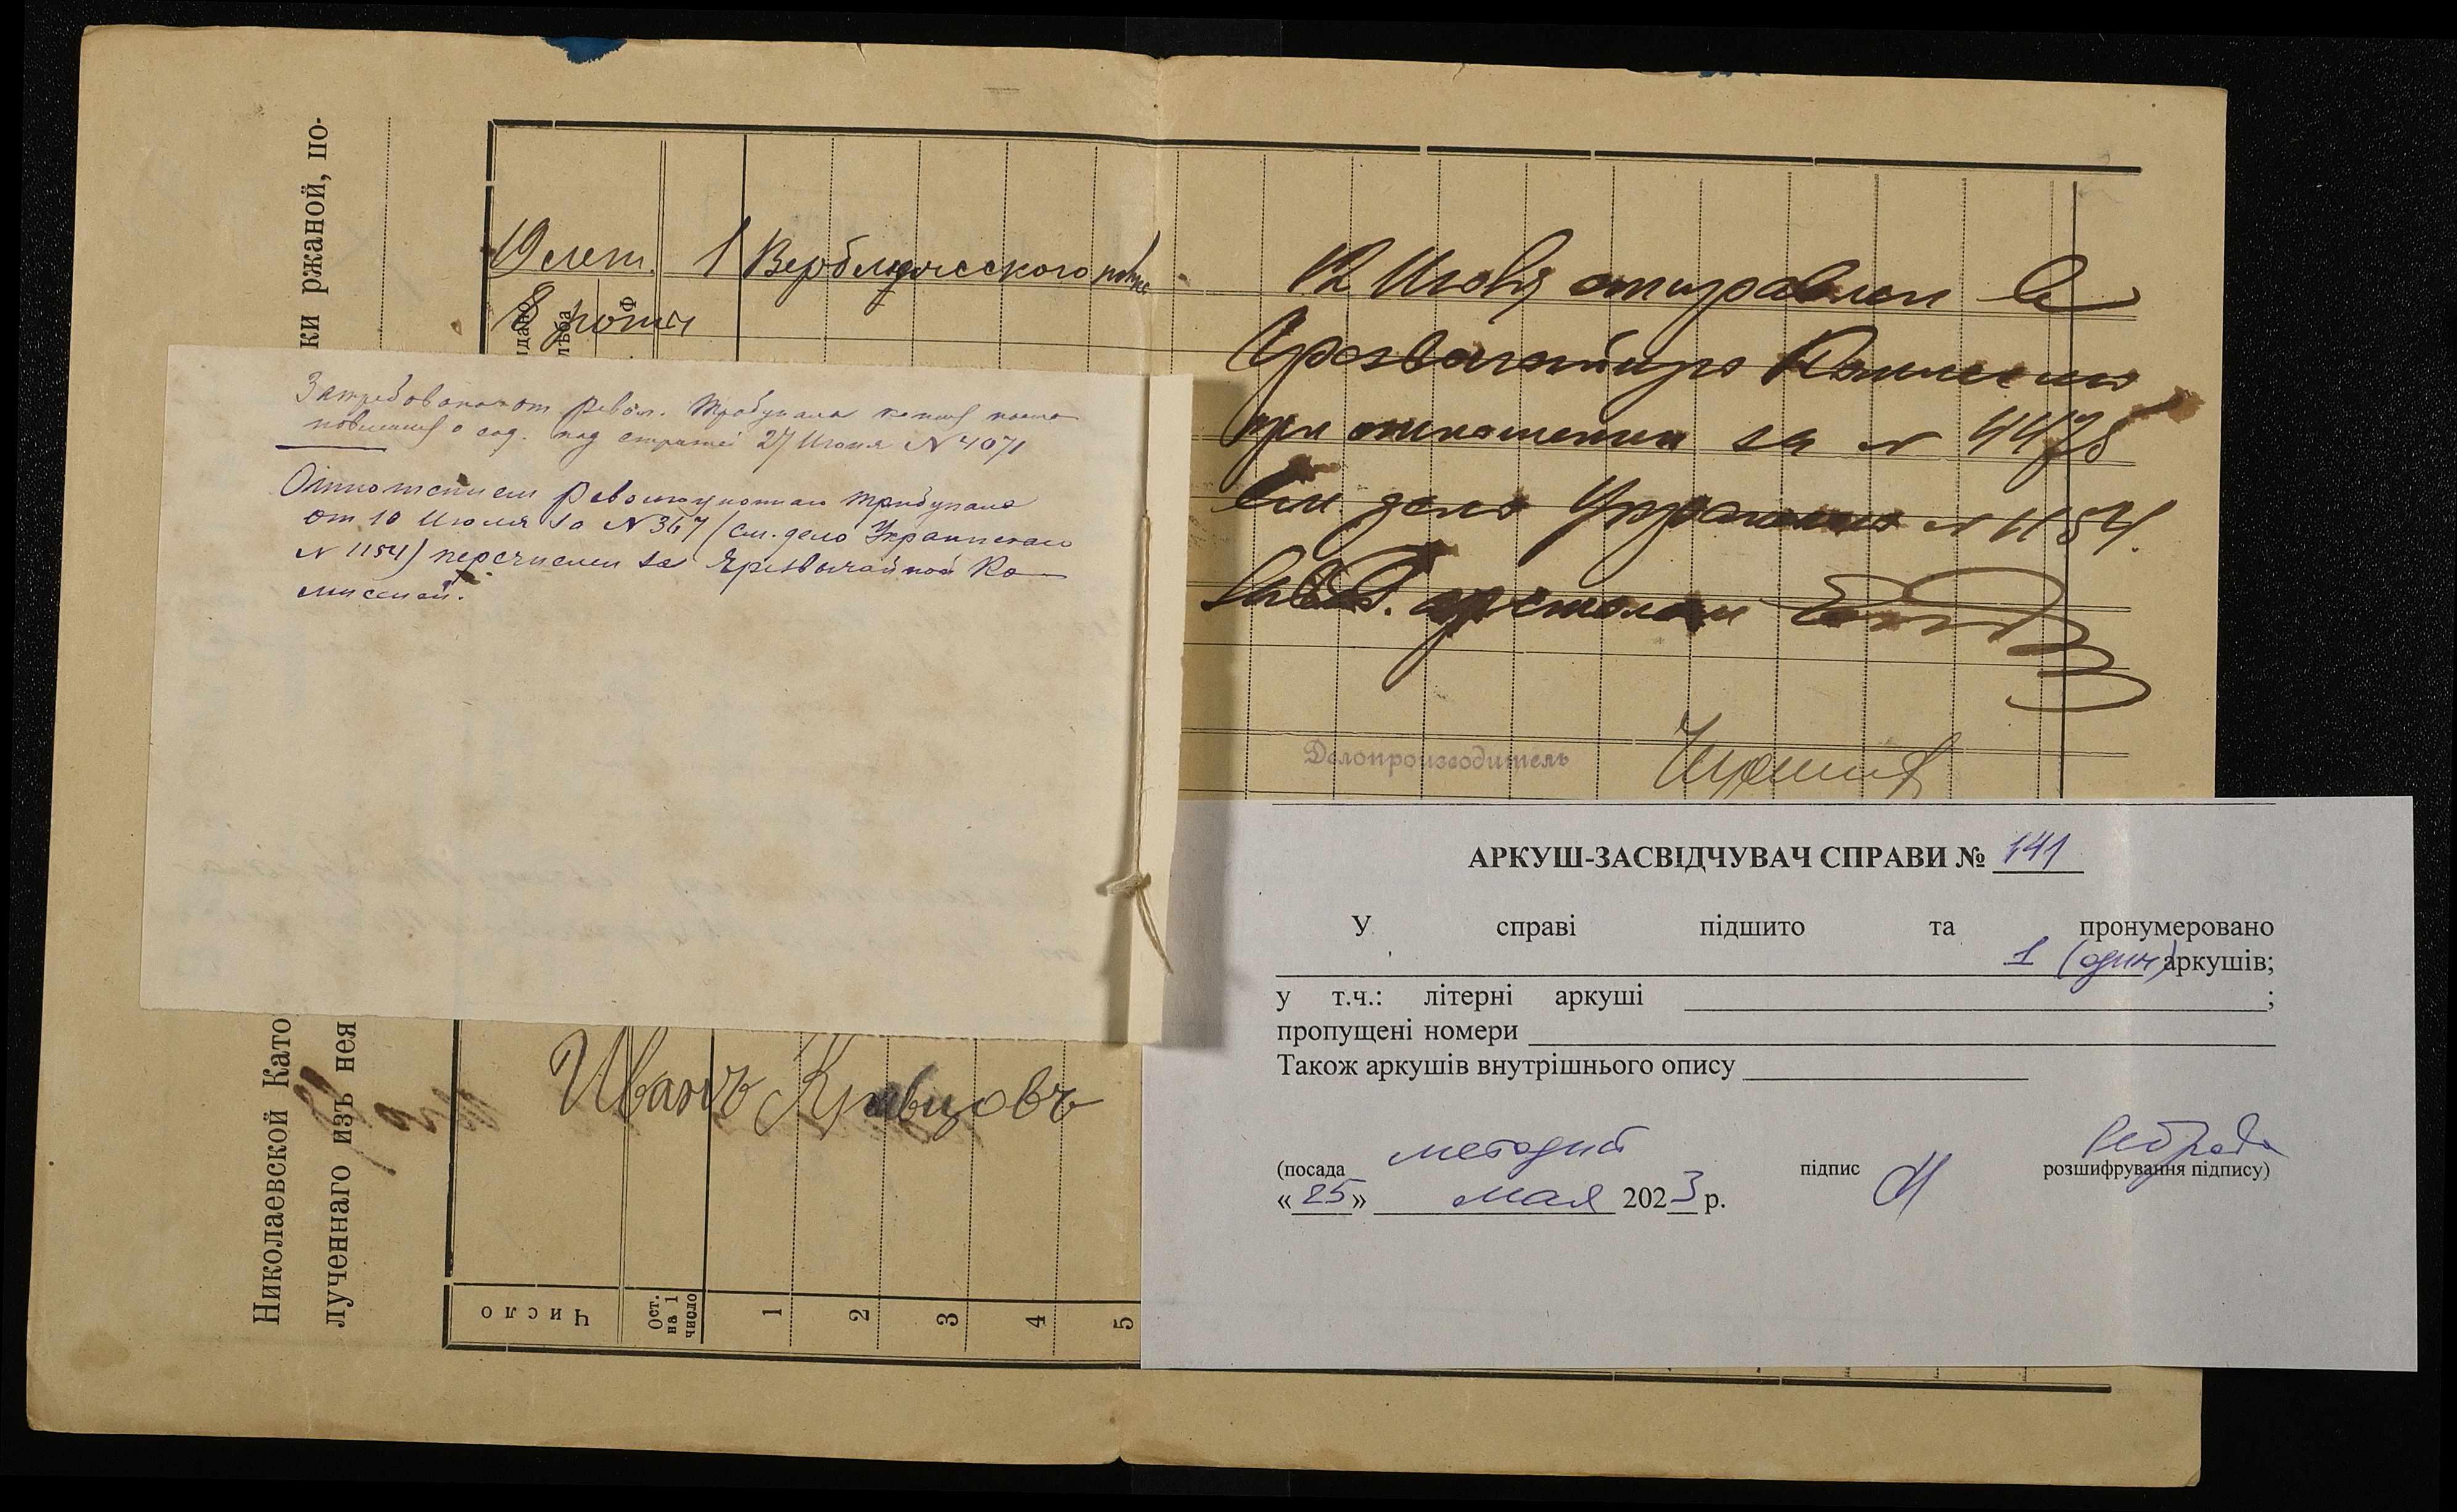 ки ржаной, по-
Николаевской Като
лученнаго изъ нея
19 лет. 1 Верблюжского полка
Затребована от Револ. Трибунала копия поста
новления о сод. под стражей 27 Июня № 4071
Отношением Революционнаго Трибунала
от 10 Июля за № 367 (см. дело Украинскаго
№ 1154) перечислен за Чрезвычайной Ко-
миссией.
12 Июля отправлен в
Чрезвычайную Комиссию
при отношении за №
См дело Украинского № 1154.
Завед. арестным
Делопроизводитель
Иванъ Кравцовъ
Число
Ост. на 1 число
1 2 3 4 5
АРКУШ-ЗАСВІДЧУВАЧ СПРАВИ № 141
У справі підшито та пронумеровано
1 (один) аркушів;
у т.ч.: літерні аркуші ;
пропущені номери
Також аркушів внутрішнього опису
методист
(посада підпис розшифрування підпису)
« 25 » мая 2023 р.